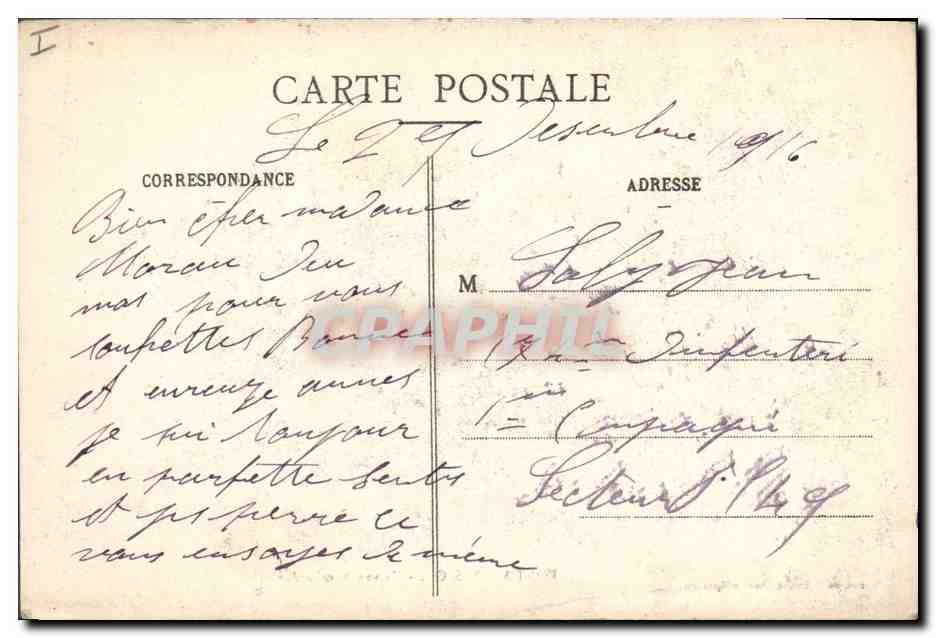 I
CARTE POSTALE
Le 29 Desembre 1916
CORRESPONDANCE
Bien cher madame
Moran Jeu
mas pour vous
soupettes Bonne
et eureuze annes
je sui toujour
en parfette sentes
et js perre ce
vous ensoyes de même
ADRESSE
M Laly Jean
Infenteri
1 Compagni
Secteur P. 149
CPAPHIL